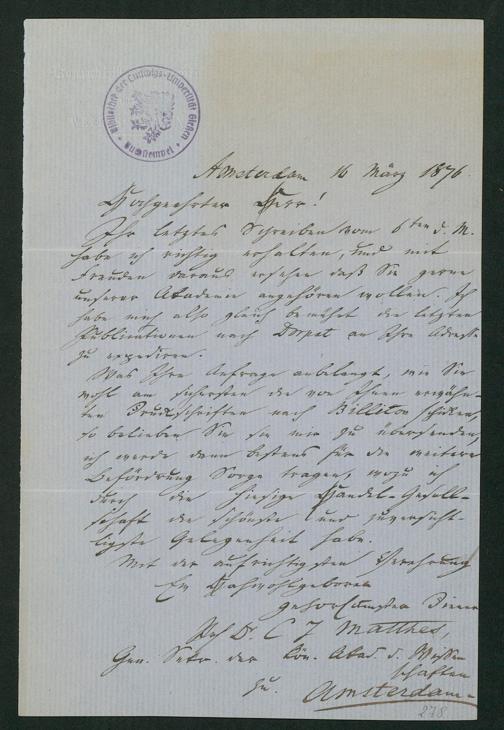 Bibliothek der Ludwigs-Universität Giessen
Amsterdam 16 März 1876.
Hochgeehrter Herr!
Ihr letztes Schreiben vom 6ten d. M.
habe ich richtig erhalten, und mit
Freuden daraus ersehen daß Sie gerne
unserer Akademie angehören wollen. Ich
habe mich also gleich bemüht die letzten
Publicationen nach Dorpat an Ihre Adresse
zu expediren.
Was Ihre Anfrage anbelangt, wie Sie
wohl am sichersten die von Ihnen erwähn-
ten Druckschriften nach Billiton schicken,
so belieben Sie sie mir zu übersenden,
ich werde dann bestens für die weitere
Beförderung Sorge tragen, wozu ich
durch die hiesige Handels-Gesell-
schaft die schönste und zuversicht-
ligste Gelegenheit habe.
Mit der aufrichtigsten Verehrung
Ew
gehorsamster Diener
Prof Dr. C J Matthes,
Gen. Sekr. der Kön. Akad. d. Wissen
schaften
zu Amsterdam
278